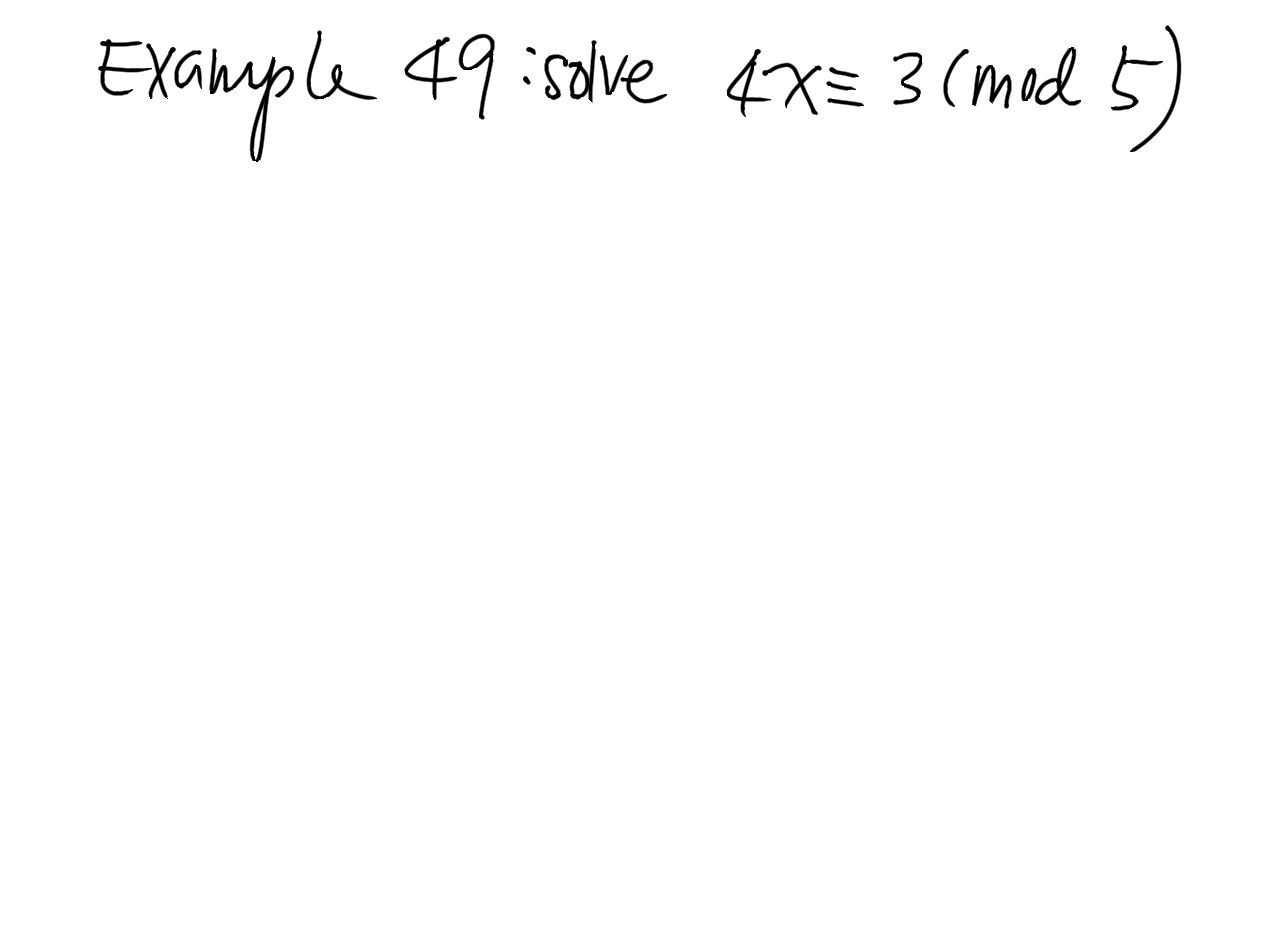 Example 49 : solve 4x ≡ 3 (mod 5)